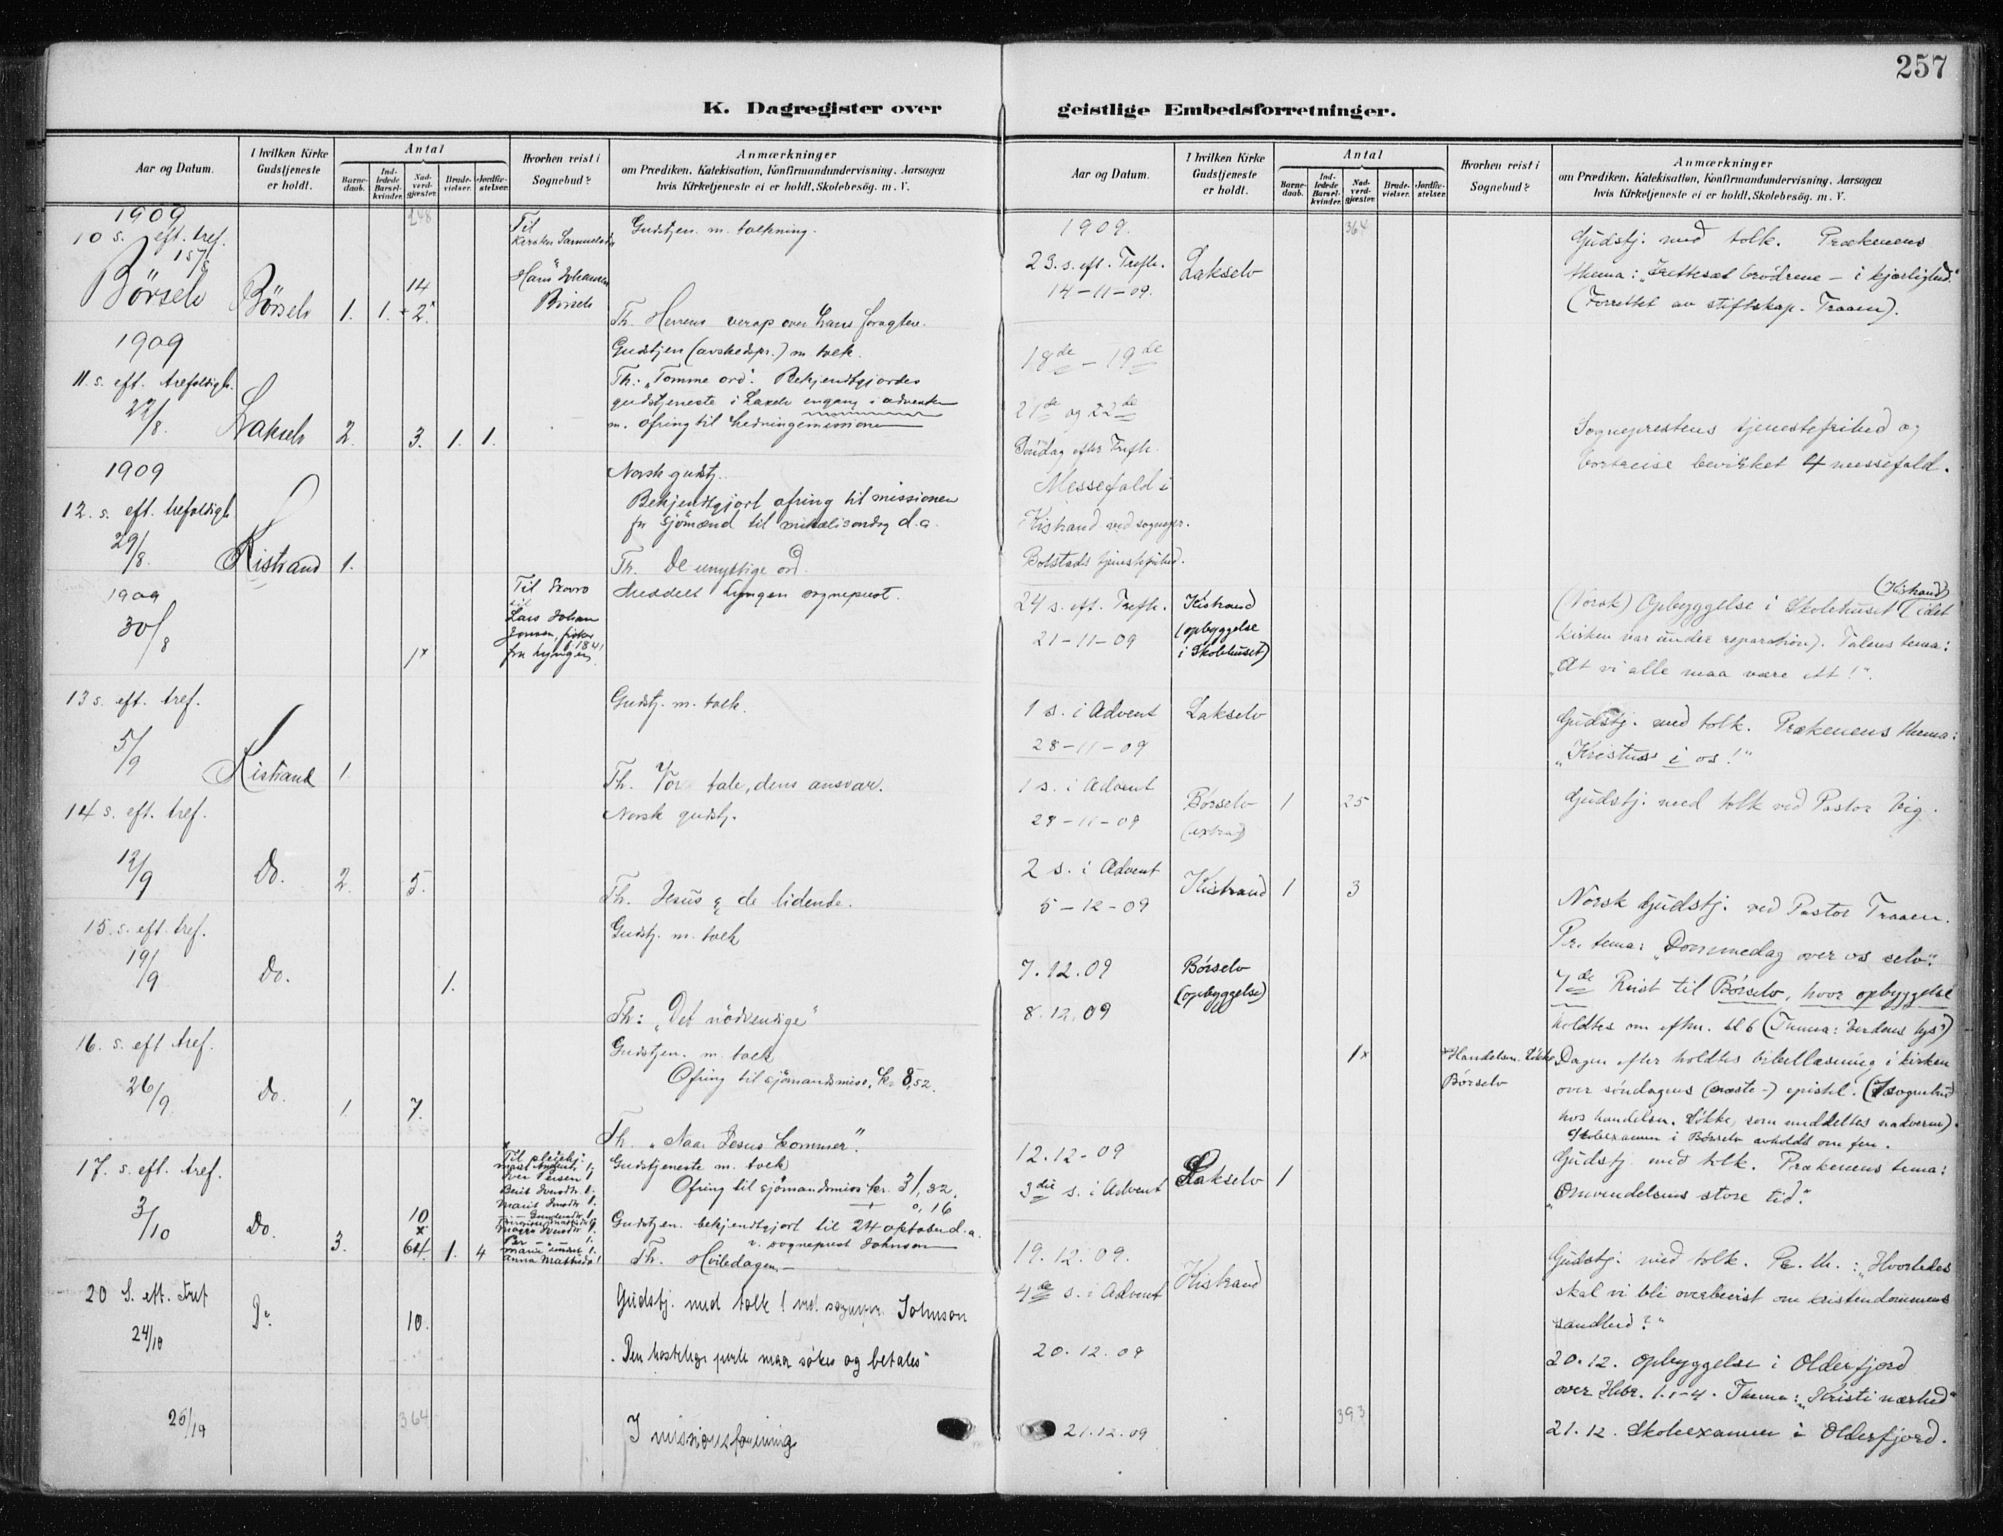 257
K. Dagregister over geistlige Embedsforretninger.
Aar og Datum.
I hvilken Kirke Gudstjeneste er holdt.
Antal
Barnedaab.
Indledede Barselkvinder.
Nadverdgjæster.
Brudevielser.
Jordfæstelser.
Hvorhen reist i Sognebud?
Anmærkninger
om Prædiken, Katekisation, Konfirmandundervisning, Aarsagen
hvis Kirketjeneste ei er holdt, Skolebesøg. m. V.
1909 248
10 s. eft. tref. 15/8
Børselv Børselv 1. 1. 14 + 2.x
Til Kirsten
Hans Johansen Børselv
Gudstjen. m. tolkning.
Th. Herrens over hans
1909
11. s. eft. trefoldigh.
22/8 Lakselv 2. 3. 1. 1.
Gudstjen (avskedspr.) m. tolk.
Th. "Tomme ord". Bekjendtgjordes
gudstjeneste i engang i advent
m. ofring til hedningemissionen
1909
12. s. eft. trefoldigh
29/8 Kistrand 1.
Norsk gudstj.
Bekjendtgjort ofring til missionen
for sjömænd til d.a.
Th. De unyttige ord.
1909
30/8 1x
Til
Lars Johan
Jonsen, fisker
fra Lyngen. 1841
Meddelt Lyngen sogneprest.
13 s. eft. tref.
5/9 Kistrand 1.
Gudstj. m. tolk.
Th. Vor tale, dens ansvar.
14 s. eft. tref.
12/9 Do. 2. 5.
Norsk gudstj.
Th. Jesus & de lidende.
15. s. eft. tref.
19/9 Do. 1.
Gudstj. m. tolk
Th: "Det nödvendige"
16. s. eft tref.
26/9 Do. 1. 7.
Gudstjen. m. tolk
Ofring til sjömandsmiss. kr 8,52.
Th. "Naar Jesus kommer".
17. s. eft. tref.
3/10 Do. 3. 10 x 64. 1. 4
Gudstjeneste m. tolk
Ofring til sjömandsmiss kr. 31,32.
+ 0,16
Gudstjen. bekjendtgjort til 24 oktober d.a.
v. sogneprest Johnson
Th. Hviledagen
20 S. eft. Tref
24/10 Do 10.
Gudstj. med tolk ! ved sognepr. Johnson
"Den kostelige perle maa sökes og betales"
26/19 364
I missionsforening
Aar og Datum.
I hvilken Kirke Gudstjeneste er holdt.
Antal
Barnedaab.
Indledede Barselkvinder.
Nadverdgjæster.
Brudevielser.
Jordfæstelser.
Hvorhen reist i Sognebud?
Anmærkninger
om Prædiken, Katekisation, Konfirmandundervisning, Aarsagen
hvis Kirketjeneste ei er holdt, Skolebesøg. m. V.
1909. 364
23. s. eft. Trefh. Lakselv
14-11-09.
Gudstj. med tolk. Prækenens
thema: "Irettesæt brödrene - i kjærlighed."
(Forrettet av stiftskap. Traaen).
18de - 19de
21de og 22de
Söndag efter Trefh.
Messefald i
Kistrand ved sognepr.
Bolstads tjenestefrihed.
Sogneprestens tjenestefrihed og
bortreise bevirket 4 messefald.
24 s. eft. Trefh. Kistrand
21-11-09 (opbyggelse
i Skolehuset)
(Norsk) Opbyggelse i Skolehuset (Kistrand) (idet
kirken var under reparation). Talens tema:
"At vi alle maa være ett!".
1 s. i Advent Lakselv
28-11-09
Gudstj. med tolk. Prækenens thema:
"Kristus i os!"
1 s. i Advent
28-11-09 Børselv (extra) 1 25
Gudstj. med tolk ved Pastor Vig.
2 s. i Advent Kistrand 1 3
5-12-09
Norsk Gudstj. ved Pastor Traaen.
Pr. tema: "Dommedag over os selv".
7.12.09 Børselv
(opbyggelse)
8.12.09
7de Reist til Børselv, hvor opbyggelse
holdtes om eftm. kl 6 (Thema: Verdens lys?)
1x x Handelsm. Lökke
Børselv
Dagen efter holdtes bibellæsning i kirken
over söndagens (næste-) epistel. (I sognebud
hos handelsm. Lökke, som meddeltes nadveren).
Skolexamen i Børselv avholdt om fm.
12.12-09
3die s. i Advent Lakselv 1
Gudstj med tolk. Prækenens tema:
"Omvendelsens store tid."
19.12.09.
4de s. i Advent Kistrand
Gudstj. med tolk. Pr. th.: "Hvorledes
skal vi bli overbevist om kristendommens
sandhed?"
20.12.09
20.12. Opbyggelse i Olderfjord
over Hebr. 1.1-4. Thema: "Kristi nærhed"
393
21.12.09
21.12. Skolexamen i Olderfjord.